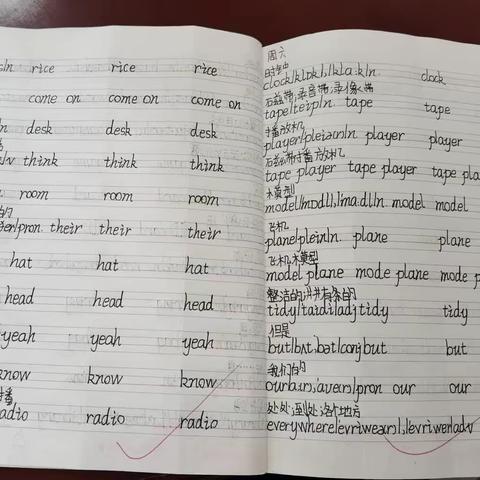 rice rice rice
come on come on come on
desk desk desk
think think think
room room room
pron. their their their
hat hat hat
head head head
yeah yeah yeah
know know know
radio radio radio
周六
时钟
clock/klɒk/,/klɑ:k/n. clock
磁带,录音带,录像带
tape/teip/n. tape tape
播放机
player/pleiə/n player player
磁带播放机
tape player tape player tape pla
模型
model/mɒdl/,/mɑ:dl/n. model model
飞机
plane/plein/n. plane plane
飞机模型
model plane mode plane mode p
整洁的,井井有条的
tidy/taidi/adj tidy tidy
但是
but/bʌt,bət/conj but but
我们的
our/aʊə/pron our our
处处,到处,各个地方
everywhere adv